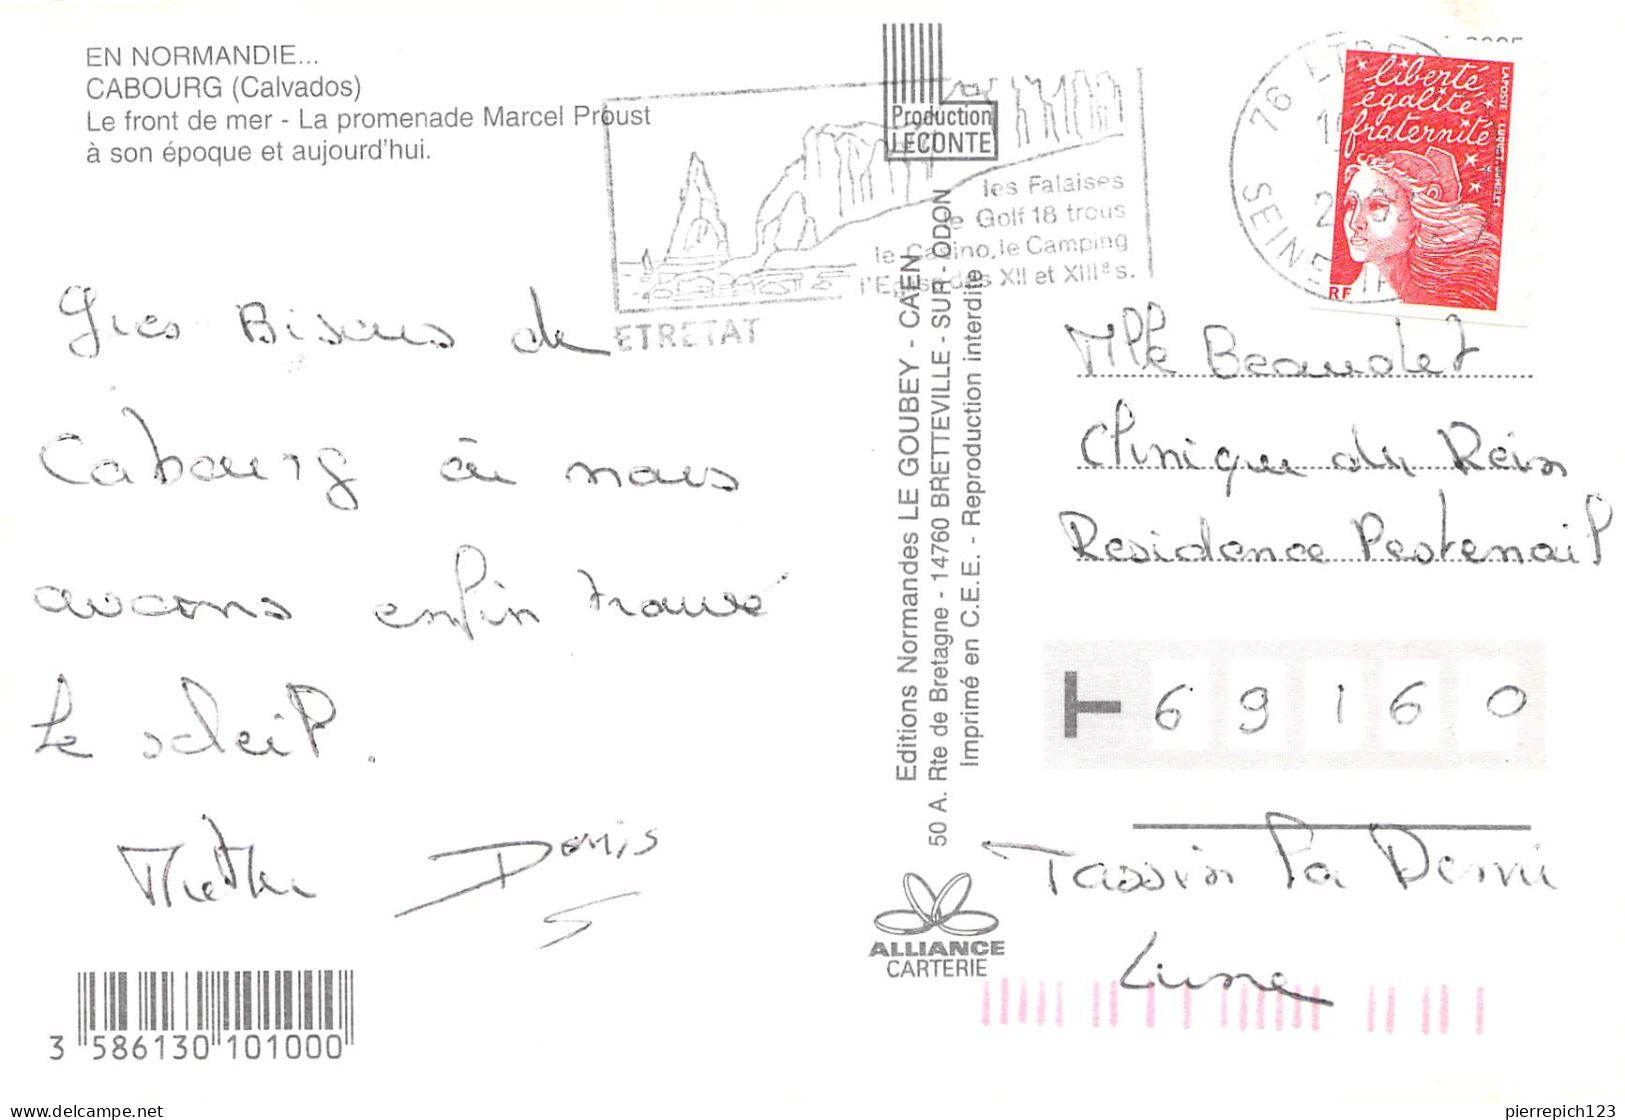 EN NORMANDIE...
CABOURG (Calvados)
Le front de mer - La promenade Marcel Proust
à son époque et aujourd'hui.
Production
LECONTE
les Falaises
le Golf 18 trous
le Casino, le Camping
l'Eglise des XII et XIIIe s.
ETRETAT
76 ETRETAT
SEINE
liberté
égalité
fraternité
LAPOSTE LUQUET/JUMELET
RF
Gros Bisous de
Cabourg où nous
avons enfin trouvé
le soleil.
Denis
Editions Normandes LE GOUBEY - CAEN
50 A. Rte de Bretagne - 14760 BRETTEVILLE - SUR - ODON
Imprimé en C.E.E. - Reproduction interdite
ALLIANCE
CARTERIE
Mlle Beaudet
Clinique du Rein
Residence Pastenail
69160
Tassin la Demi
Lune
3 586130 101000
pierrepich123